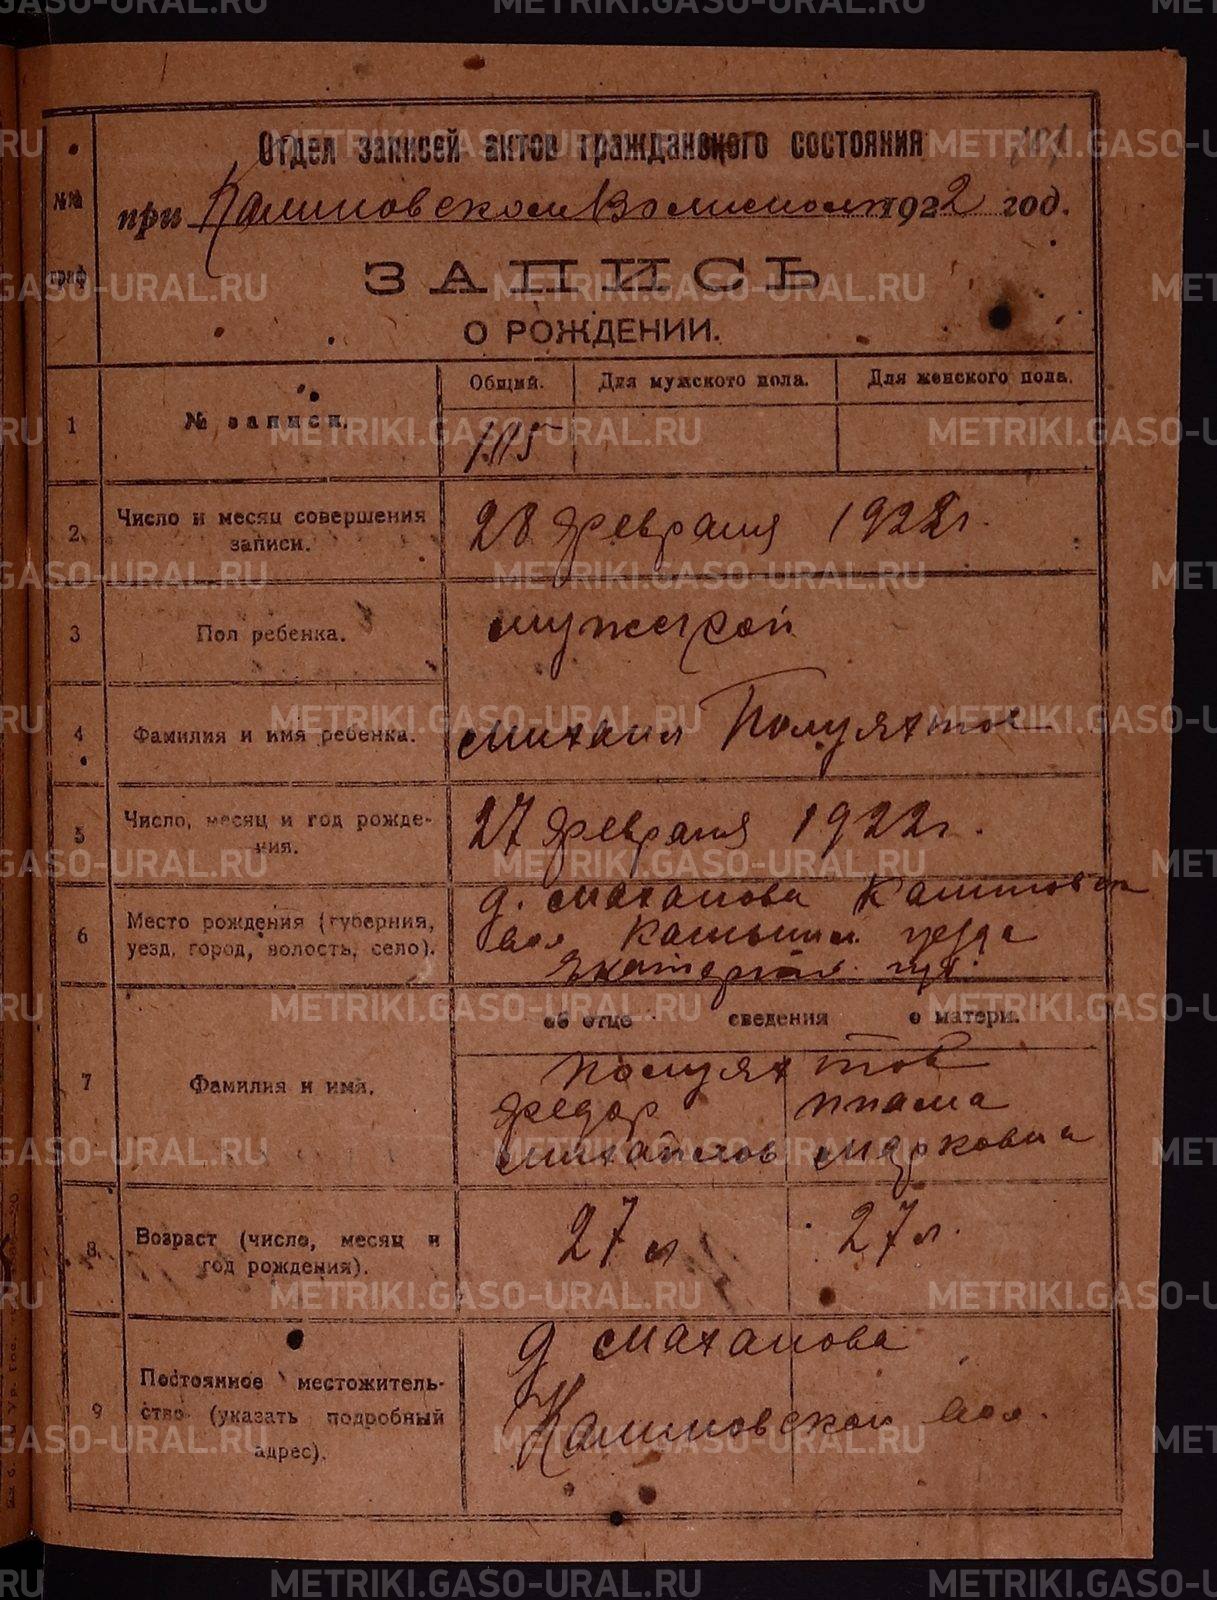 Отдел записей актов гражданского состояния
№№ граф
при Калиновском Волисполк 1922 год.
ЗАПИСЬ
О РОЖДЕНИИ.
1
№ записи.
Общий.
Для мужского пола.
Для женского пола.
2
Число и месяц совершения
записи.
28 февраля 1922 г.
3
Пол ребенка.
мужской
4
Фамилия и имя ребенка.
Михаил Полуяхтов
5
Число, месяц и год рожде-
ния.
27 февраля 1922 г.
6
Место рождения (губерния,
уезд, город, волость, село).
д. Маханова Калиновск
вол Камышл. уезда
Екатерин. губ.
7
Фамилия и имя.
об отце сведения о матери.
Полуяхтов
Федор
Михайлов Марковна
8
Возраст (число, месяц и
год рождения).
27 л
27 л.
9
Постоянное местожитель-
ство (указать подробный
адрес).
д Маханова
Калиновской вол.
METRIKI.GASO-URAL.RU